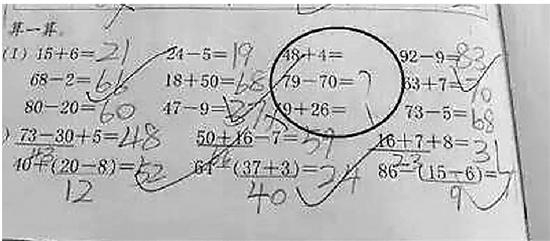 算一算。
(1) 15+6=21 24-5=19 48+4= 92-9=83
68-2=66 18+50=68 79-70= 63+7=70
80-20=60 47-9=37 49+26= 73-5=68
) 73-30+5=48 50+16-7=59 16+7+8=31
43 23
40+(20-8)=52 64-(37+3)=24 86-(15-6)=
12 40 9